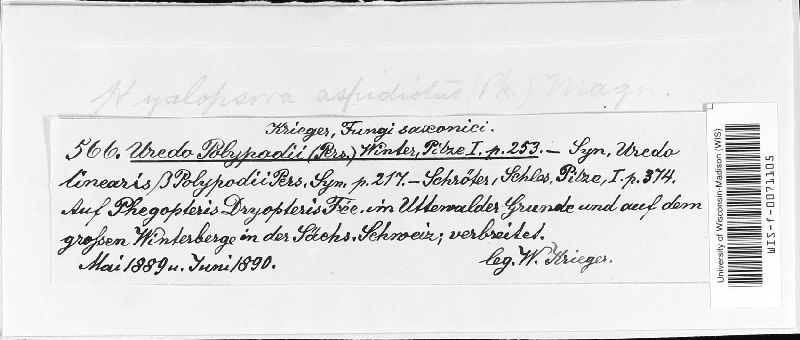 Hyalopsora aspidiotus (Pk.) Magn.
Krieger, Fungi saxonici.
566. Uredo Polypodii (Pers.) Winter, Pilze I. p. 253. — Syn. Uredo
linearis β Polypodii Pers. Sym. p. 217. — Schröter, Schles. Pilze, I. p. 374.
Auf Phegopteris Dryopteris Fée. im Uttewalder Grunde und auf dem
großen Winterberge in der Sächs. Schweiz; verbreitet.
Mai 1889 u. Juni 1890. leg. W. Krieger.
University of Wisconsin-Madison (WIS)
WIS-f-0071105